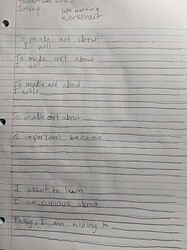 To make art about
I will
To make art about
I
To make art about
I will
To make art about
is important because
I want to learn
I am curious about
Today, I am willing to